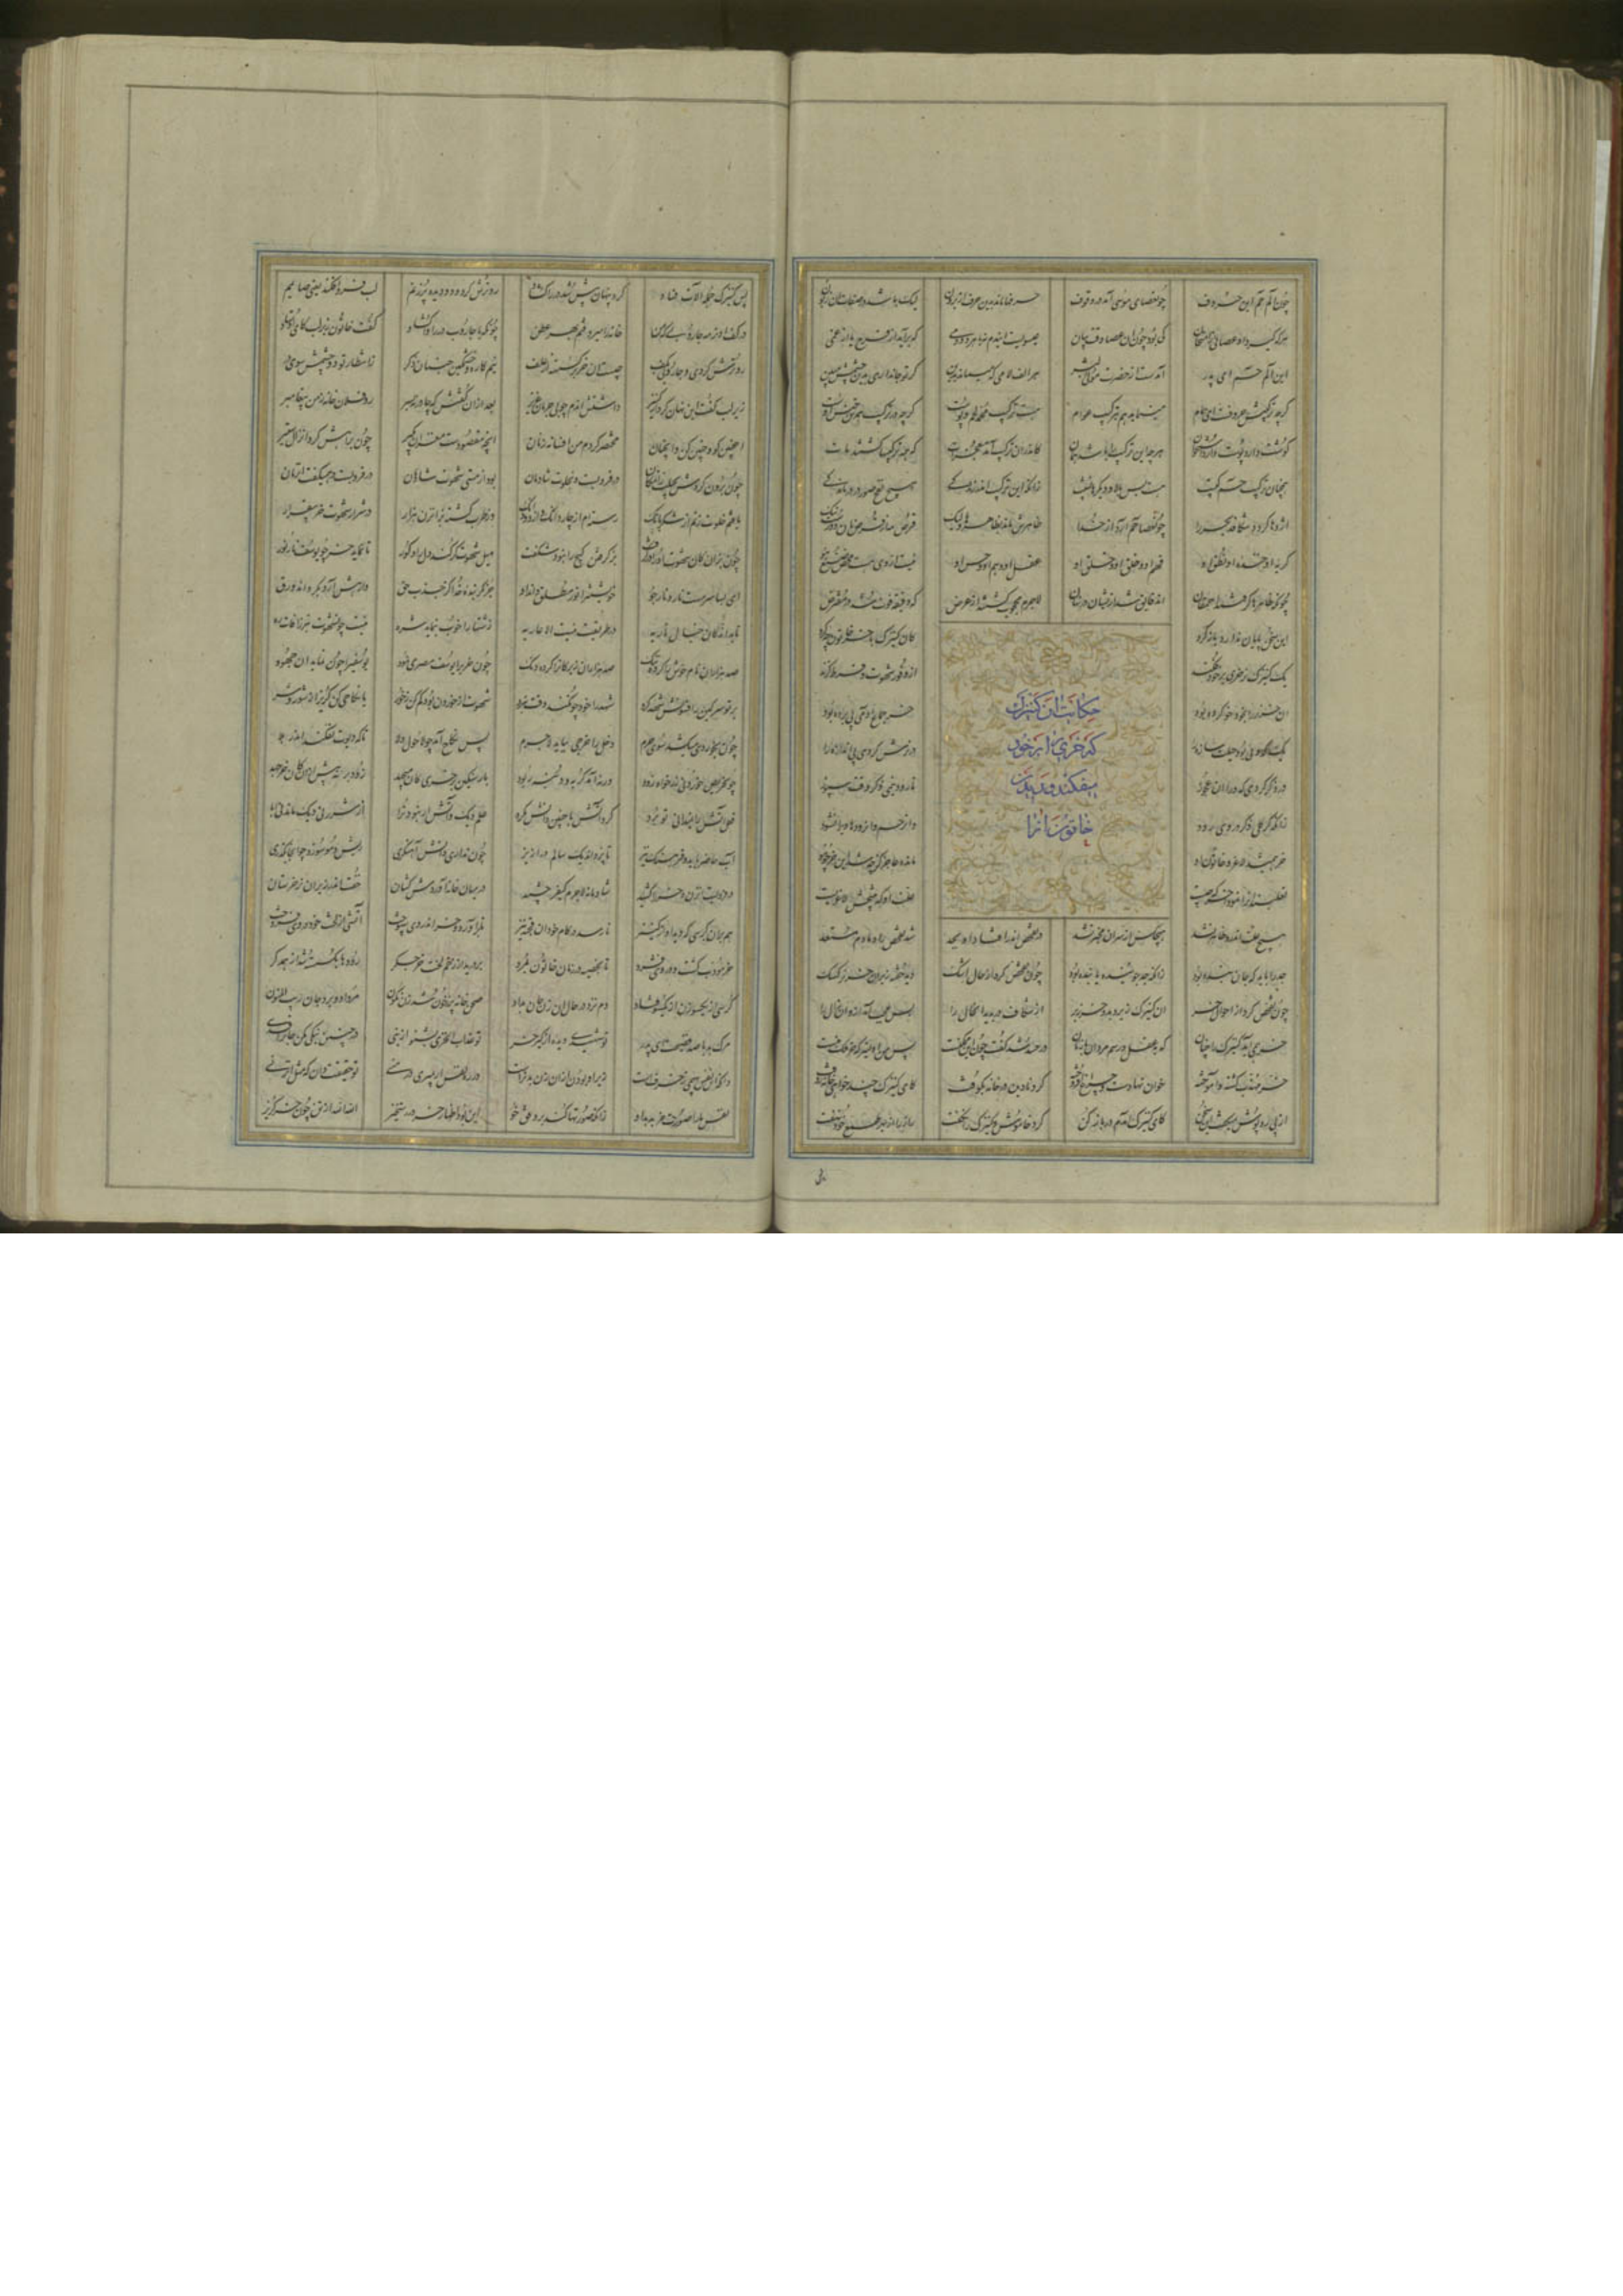 چون الم حم این حروف چون عصای موسی آمد در وقوف حرفها ماند بدین حرف از برون لیک باشد در صفات آن زبون
هرکه گیرد او عصایی ز امتحان کی بود چون آن عصا وقت بیان عیسویست این دم نه هر باد و دمی که برآید از فرح یا از غمی
این الم حم ای پدر آمدست از حضرت مولی البشر هر الف لامی کی میماند بدین گر تو جان داری بدین چشمش مبین
گرچه ترکیبش حروفست ای همام می‌بماند هم بترکیب عوام هست ترکیب محمد لحم و پوست گرچه در ترکیب هر تن جنس اوست
گوشت دارد پوست دارد استخوان هیچ این ترکیب را باشد همان کاندران ترکیب آمد معجزات که همه ترکیبها گشتند مات
همچنان ترکیب حم کتیب هست بس بالا و دیگرها نشیب زانکه این ترکیب آید زندگی همچو نفخ صور در درماندگی
اژدها گردد شکافد بحر را چون عصا حم از خدا ظاهرش ماند بظاهرها ولیک قرص نان از قرص مه دورست نیک
گریه او خنده او نطق او فهم او و خلق او و خلق او عقل او وهم او و حس او نیست از وی هست محض صنع هو
چونکه ظاهرها گرفتند احمقان آن دقایق شد ازیشان نهان لاجرم محجوب گشتند از غرض که دقیقه فوت شد در معترض
این سخن پایان ندارد بازگرد کان کنیزک با خر خاتون چه کرد
حکایت آن کنیزک
که خری را بر خود
بیفکند و دیدن
خاتون آنرا
یک کنیزک نر خری بر خود فکند از وفور شهوت و فرط گزند
آن خر نر را بخود خو کرده بود خر جماع آدمی پی برده بود
یک کدویی بود حیلت سازه را در نرش کردی پی اندازه را
در ذکر کردی کدو را آن عجوز تا رود نیم ذکر وقت سپوز
زانکه گر کل ذکر در وی رود آن رحم و آن رودها شود
خر همی شد لاغر و خاتون او مانده عاجز کز چه شد این خر چو مو
نعلبندان را نمود آن خر که چیست علت او که نتیجش لاغریست
هیچ علت اندرو ظاهر نشد هیچکس از سر آن مخبر نشد در تفحص اندر افتاد او بجد شد تفحص را دمادم مستعد
جد را باید که جان بنده بود زانکه جد جوینده یابنده بود چون تفحص کرد از حال اشک دید خفته زیر آن خر نرگسک
چون تفحص کرد از احوال خر آن کنیزک زیر دید و خر زبر از شکاف در بدید آن حال را بس عجب آمد از آن آن زال را
خر همی گاید کنیزک را چنان که بعقل و رسم مردان با زنان در حسد شد گفت چون این ممکنست پس من اولیتر که خر ملک منست
خر مهذب گشته و آموخته خوان نهادست و چراغ افروخته کرد نادیده در خانه بکوفت کای کنیزک چند خواهی خانه روفت
از پی روپوش میگفت این سخن کای کنیزک آمدم در باز کن کرد خاموش و کنیزک را نگفت راز را از بهر طمع خود نهفت
پس کنیزک جمله آلات فساد کرد پنهان پیش شد در را گشاد رو ترش کرد و دو دیده پر ز نم لب فرو افکند یعنی صایمم
در کف او نرمه جاروبی که من خانه را میروفتم بهر عطن چونکه با جاروب در را او گشاد گفت خاتون زیر لب کای اوستاد
رو ترش کردی و جاروبی بکف چیست آن خر گرسسته از علف نیم کاره و خشمگین جنبان ذکر ز انتظار تو دو چشمش سوی در
زیر لب گفت این نهان کرد از کنیز داشتش آن دم چو بی جرمان عزیز بعد از آن گفتش که چادر نه بسر رو فلان خانه ز من پیغام بر
اینچنین گو وینچنین کن وانچنان مختصر کردم من افسانه زنان آنچه مقصودست مغز آن بگیر چون براهش کرد آن زال ستیر
بود از مستی شهوت شادمان در فرو بست و همی گفت آن زمان
یافتم خلوت زنم از شکر بانگ رسته‌ام از چار دانگ و از دو دانگ از طرب گشته بزان زن هزار در شرار شهوت خر بیقرار
چون بزان کان شهوت او را بز گرفت بز گرفتن گیج را نبود شگفت میل شهوت کر کند دل را و کور تا نماید خر چو یوسف نار نور
ای بسا سرمست نار و نار جو خویشتن را نور مطلق داند او جز مگر بنده خدا کز جذب حق با رهش آرد بگرداند ورق
تا بداند کان خیال ناریه در طریقت نیست الا عاریه زشتها را خوب بنماید شره نیست چون شهوت بتر ز آفات ره
صد هزاران نام خوش را کرد ننگ صد هزاران زیرکان را کرده دنگ چون خری را یوسف مصری نمود یوسفی را چون نماید آن جهود
بر تو سرگین را فسونش شهد کرد شهد را خود چون کند وقت نبرد شهوت از خوردن بود کم کن ز خور یا نکاحی کن گریزان شو ز شر
چون بخوردی میکشد سوی حرم دخل را خرجی بباید لاجرم پس نکاح آمد چو لاحول ولا تا که دیوت نفکند اندر بلا
چون حریص خوردنی زن خواه زود ورنه آمد گربه و دنبه ربود بار سنگین بر خری کان میجهد زود بر نه پیش از آن کان بر نهد
فعل آتش را نمیدانی تو برد گرد آتش با چنین دانش مگرد علم دیگ و آتش ار نبود ترا از شرر نی دیگ ماند نی ابا
آب حاضر باید و فرهنگ نیز تا پزد آن دیگ سالم در ازیز چون نداری دانش آهنگری ریش و مو سوزد چو آنجا بگذری
در فرو بست آن زن و خر را کشید شادمانه لاجرم کیفر چشید در میان خانه آوردش کشان خفت اندر زیر آن نر خر ستان
هم بر آن کرسی که دید او از کنیز تا رسد در کام خود آن قحبه نیز پا برآورد و خر اندر وی سپوخت آتشی از کیر خر در وی فروخت
خر مؤدب گشته در وی فشرد تا بخایه در زمان خاتون بمرد بر درید از زخم کیر خر جگر رودها بگسسته شد از همدگر
کرسی از یکسو زن از یکسو فتاد دم نزد در حال آن زن جان بداد صحن خانه پر ز خون شد زن نگون مرد او و برد جان ریب المنون
مرگ بد با صد فضیحت ای پدر تو شهیدی دیده از کیر خر تو عذاب الخزی بشنو از نبی در چنین ننگی مکن جان را فدی
دانکه این نفس بهیمی نر خرست زیر او بودن از آن ننگین‌ترست در ره نفس ار بمیری در منی تو حقیقت دان که مثل آن زنی
نفس ما را صورت خر بدهد او زانکه صورتها کند بر وفق خو این بود اظهار سر در رستخیز الله الله از تن چون خر گریز